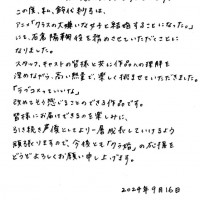 この度、私、飯
アニメ『クラスの大嫌いな女子と結婚することになった。』
にて、石倉陽鞠役を務めさせていただくことに
なりました。
スタッフ、キャストの皆様と共に作品への理解を
深めながら、高い熱量で、楽しく挑ませていただきました。
「ラブコメっていいな」
改めてそう感じることのできる作品です。
皆様にお届けできるのを楽しみに、
引き続き声優としてより一層成長していけるよう
頑張りますので、今後とも『クラ婚』の応援を
どうぞよろしくお願い申し上げます。
2024年9月16日